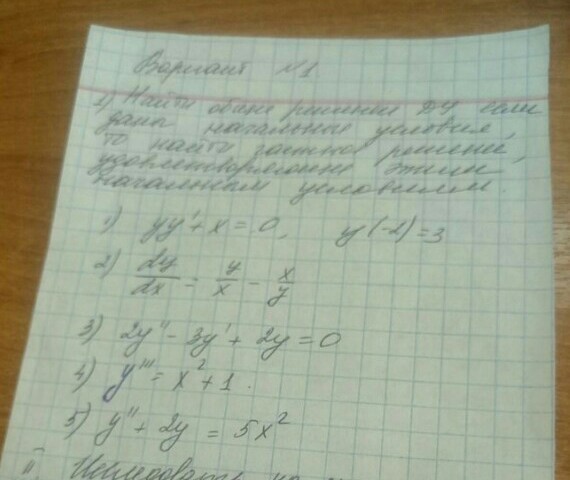 Вариант №1
1) Найти общее решение ДУ если
даны начальные условия,
то найти частное решение,
удовлетворяющие этим
начальным условиям.
1) yy' + x = 0, y(-2) = 3
2) dy/dx = y/x - x/y
3) 2y'' - 3y' + 2y = 0
4) y''' = x² + 1.
5) y'' + 2y = 5x²
II Исследовать на